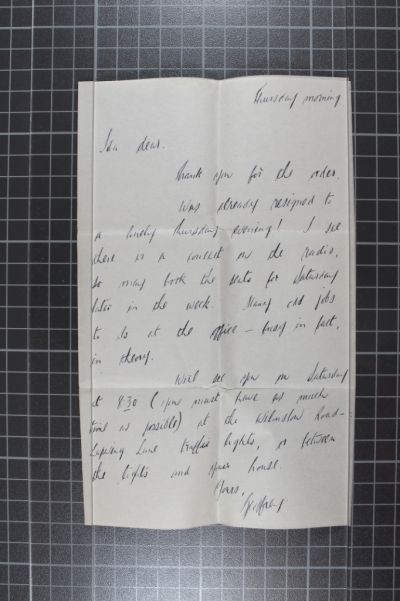 Thursday morning
Ida dear.
Thank you for the order.
Was already resigned to
a lonely Thursday evening! I see
there is a concert on the radio,
so may book the seats for Saturday
later in the week. Many odd jobs
to do at the office – busy in fact,
in theory.
Will see you on Saturday
at 8.30 (you must have as much
time as possible) at the Wilmslow Road-
Lapwing Lane traffic lights, or between
the lights and your house.
Yours,